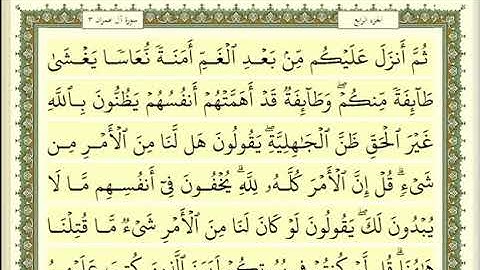 سورة آل عمران ٣
الجزء الرابع
ثُمَّ أَنزَلَ عَلَيْكُم مِّنۢ بَعْدِ ٱلْغَمِّ أَمَنَةً نُّعَاسًا يَغْشَىٰ
طَآئِفَةً مِّنكُمْ ۖ وَطَآئِفَةٌ قَدْ أَهَمَّتْهُمْ أَنفُسُهُمْ يَظُنُّونَ بِٱللَّهِ
غَيْرَ ٱلْحَقِّ ظَنَّ ٱلْجَٰهِلِيَّةِ ۖ يَقُولُونَ هَل لَّنَا مِنَ ٱلْأَمْرِ مِن
شَىْءٍ ۗ قُلْ إِنَّ ٱلْأَمْرَ كُلَّهُۥ لِلَّهِ ۗ يُخْفُونَ فِىٓ أَنفُسِهِم مَّا لَا
يُبْدُونَ لَكَ ۖ يَقُولُونَ لَوْ كَانَ لَنَا مِنَ ٱلْأَمْرِ شَىْءٌ مَّا قُتِلْنَا
هَٰهُنَا ۗ قُل لَّوْ كُنتُمْ فِى بُيُوتِكُمْ لَبَرَزَ ٱلَّذِينَ كُتِبَ عَلَيْهِمُ